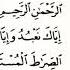 الرَّحْمَٰنِ الرَّحِيمِ
إِيَّاكَ نَعْبُدُ وَإِيَّا
الصِّرَاطَ الْمُسْتَ